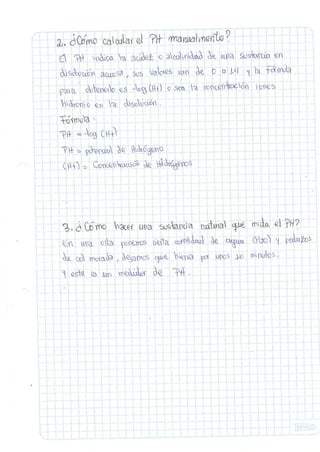 2. ¿Cómo calcular el PH manualmente?
El PH indica la acidez o alcalinidad de una sustancia en
disolución acuosa, sus valores van de 0 a 14 y la fórmula
para obtenerlo es -log (H+) o sea la concentración iones
hidronio en la disolución.
Fórmula:
PH = -log (H+)
PH = potencial de Hidrógeno
(H+) = Concentración de Hidrógenos
3. ¿Cómo hacer una sustancia natural que mida el PH?
En una olla ponemos cierta cantidad de agua (H2O) y pedazos
de col morada, dejamos que hierva por unos 20 minutos.
Y este es un medidor de PH.